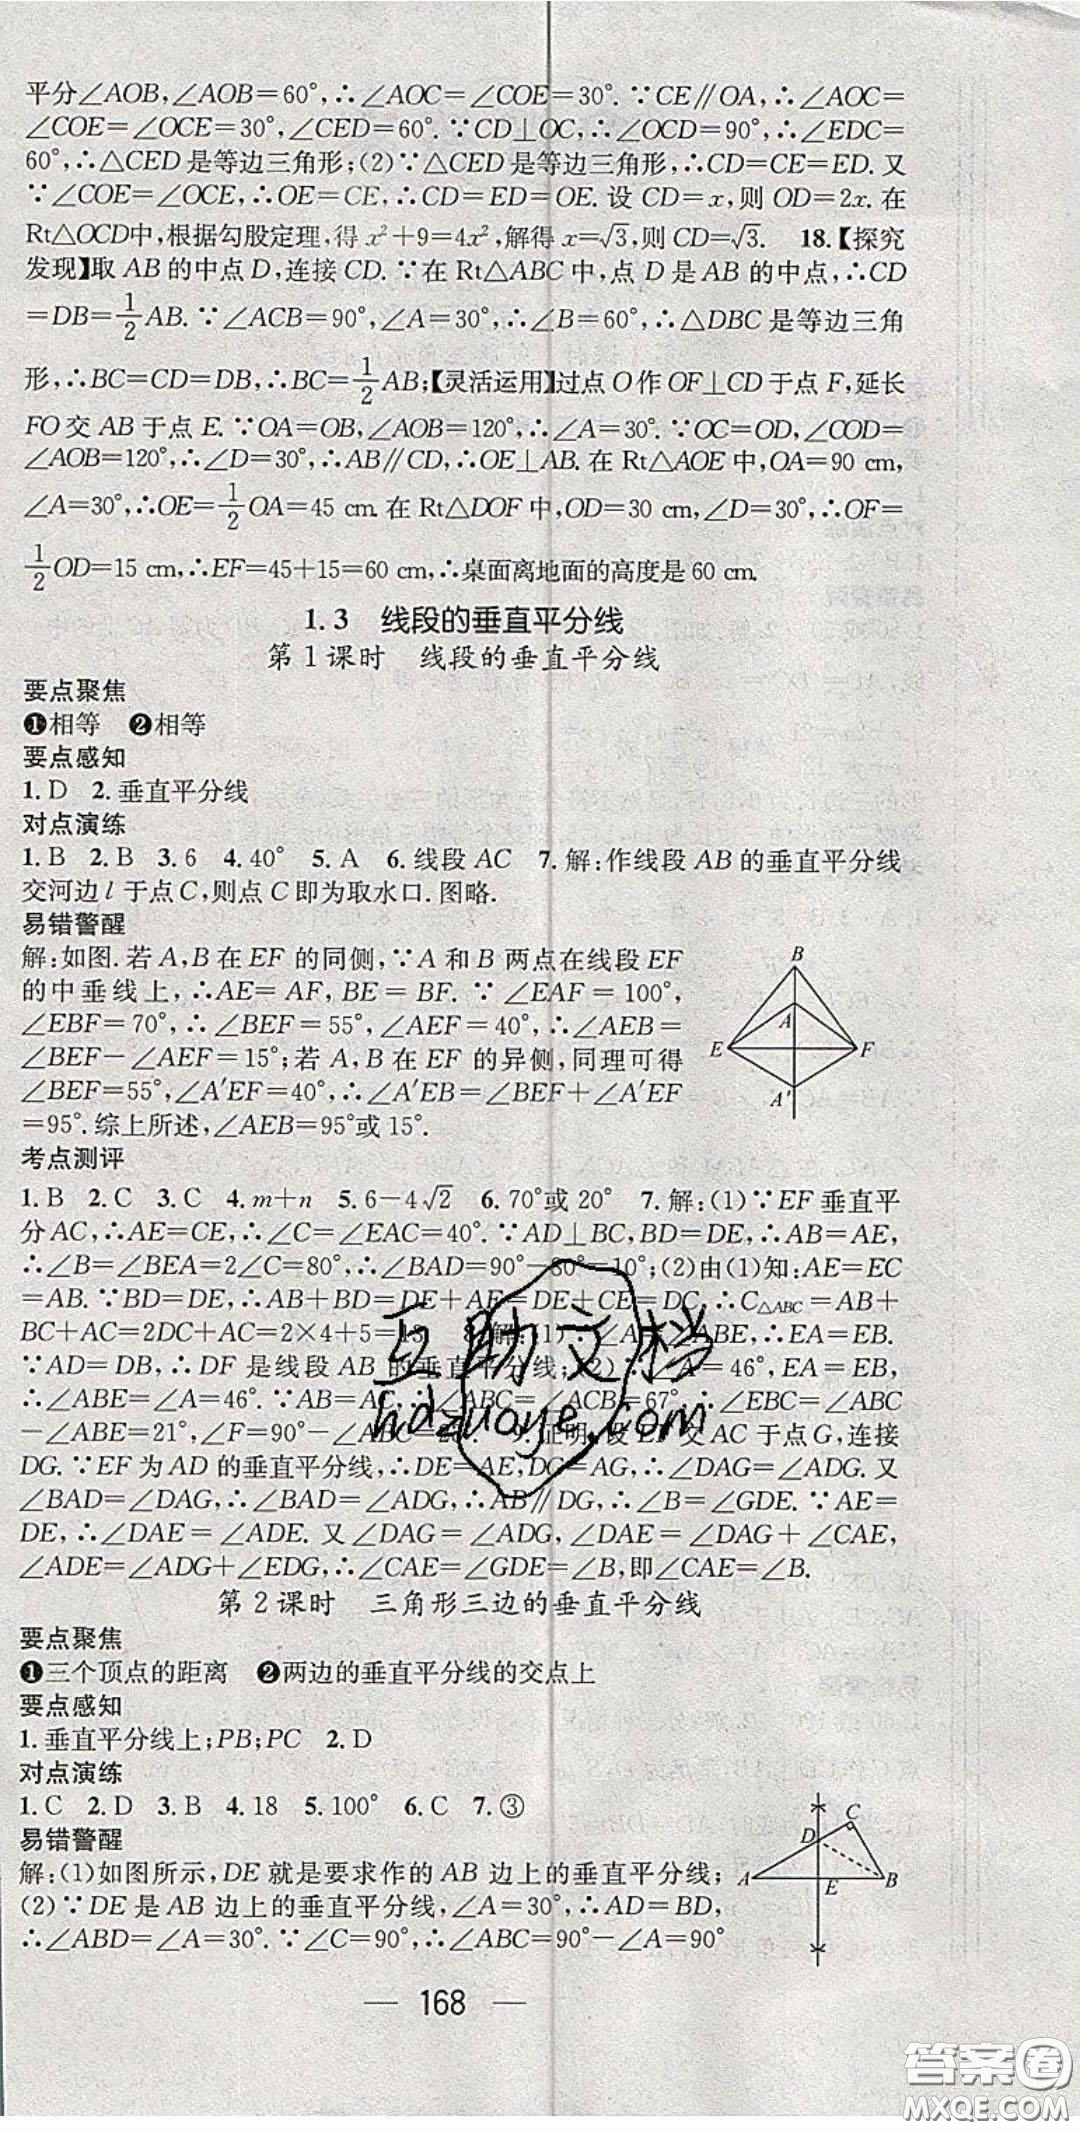 平分∠AOB,∠AOB=60°,∴∠AOC=∠COE=30°.∵CE∥OA,∴∠AOC=
∠COE=∠OCE=30°,∠CED=60°.∵CD⊥OC,∴∠OCD=90°,∴∠EDC=
60°,∴△CED是等边三角形;(2)∵△CED是等边三角形,∴CD=CE=ED.又
∵∠COE=∠OCE,∴OE=CE,∴CD=ED=OE.设CD=x,则OD=2x.在
Rt△OCD中,根据勾股定理,得x²+9=4x²,解得x=√3,则CD=√3. 18.【探究
发现】取AB的中点D,连接CD.∵在Rt△ABC中,点D是AB的中点,∴CD
=DB=1/2AB.∵∠ACB=90°,∠A=30°,∴∠B=60°,∴△DBC是等边三角
形,∴BC=CD=DB,∴BC=1/2AB;【灵活运用】过点O作OF⊥CD于点F,延长
FO交AB于点E.∵OA=OB,∠AOB=120°,∴∠A=30°.∵OC=OD,∠COD=
∠AOB=120°,∴∠D=30°,∴AB∥CD,∴OE⊥AB.在Rt△AOE中,OA=90 cm,
∠A=30°,∴OE=1/2OA=45 cm.在Rt△DOF中,OD=30 cm,∠D=30°,∴OF=
1/2OD=15 cm,∴EF=45+15=60 cm,∴桌面离地面的高度是60 cm.
1.3 线段的垂直平分线
第1课时 线段的垂直平分线
要点聚焦
❶相等 ❷相等
要点感知
1.D 2.垂直平分线
对点演练
1.B 2.B 3.6 4.40° 5.A 6.线段AC 7.解:作线段AB的垂直平分线
交河边l于点C,则点C即为取水口.图略.
易错警醒
解:如图.若A,B在EF的同侧,∵A和B两点在线段EF
的中垂线上,∴AE=AF,BE=BF.∵∠EAF=100°,
∠EBF=70°,∴∠BEF=55°,∠AEF=40°,∴∠AEB=
∠BEF-∠AEF=15°;若A,B在EF的异侧,同理可得
∠BEF=55°,∠A′EF=40°,∴∠A′EB=∠BEF+∠A′EF
=95°.综上所述,∠AEB=95°或15°.
B
A
E
F
A′
考点测评
1.B 2.C 3.C 4.m+n 5.6-4√2 6.70°或20° 7.解:(1)∵EF垂直平
分AC,∴AE=CE,∴∠C=∠EAC=40°.∵AD⊥BC,BD=DE,∴AB=AE,
∴∠B=∠BEA=2∠C=80°,∴∠BAD=90°-80°=10°;(2)由(1)知:AE=EC
=AB.∵BD=DE,∴AB+BD=DE+AE=DE+CE=DC,∴C△ABC=AB+
BC+AC=2DC+AC=2×4+5=13. 8.解:(1)∵∠A=∠ABE,∴EA=EB.
∵AD=DB,∴DF是线段AB的垂直平分线;(2)∵∠A=46°,EA=EB,
∴∠ABE=∠A=46°.∵AB=AC,∴∠ABC=∠ACB=67°,∴∠EBC=∠ABC
-∠ABE=21°,∠F=90°-∠ABC= 9.证明:设EF交AC于点G,连接
DG.∵EF为AD的垂直平分线,∴DE=AE,DG=AG,∴∠DAG=∠ADG.又
∠BAD=∠DAG,∴∠BAD=∠ADG,∴AB∥DG,∴∠B=∠GDE.∵AE=
DE,∴∠DAE=∠ADE.又∠DAG=∠ADG,∠DAE=∠DAG+∠CAE,
∠ADE=∠ADG+∠EDG,∴∠CAE=∠GDE=∠B,即∠CAE=∠B.
第2课时 三角形三边的垂直平分线
要点聚焦
❶三个顶点的距离 ❷两边的垂直平分线的交点上
要点感知
1.垂直平分线上;PB;PC 2.D
对点演练
1.C 2.D 3.B 4.18 5.100° 6.C 7.③
易错警醒
解:(1)如图所示,DE就是要求作的AB边上的垂直平分线;
(2)∵DE是AB边上的垂直平分线,∠A=30°,∴AD=BD,
∴∠ABD=∠A=30°.∵∠C=90°,∴∠ABC=90°-∠A=90°
C
D
A
E
B
— 168 —
互助文档
hdzuoye.com
答案圈
MXQE.COM